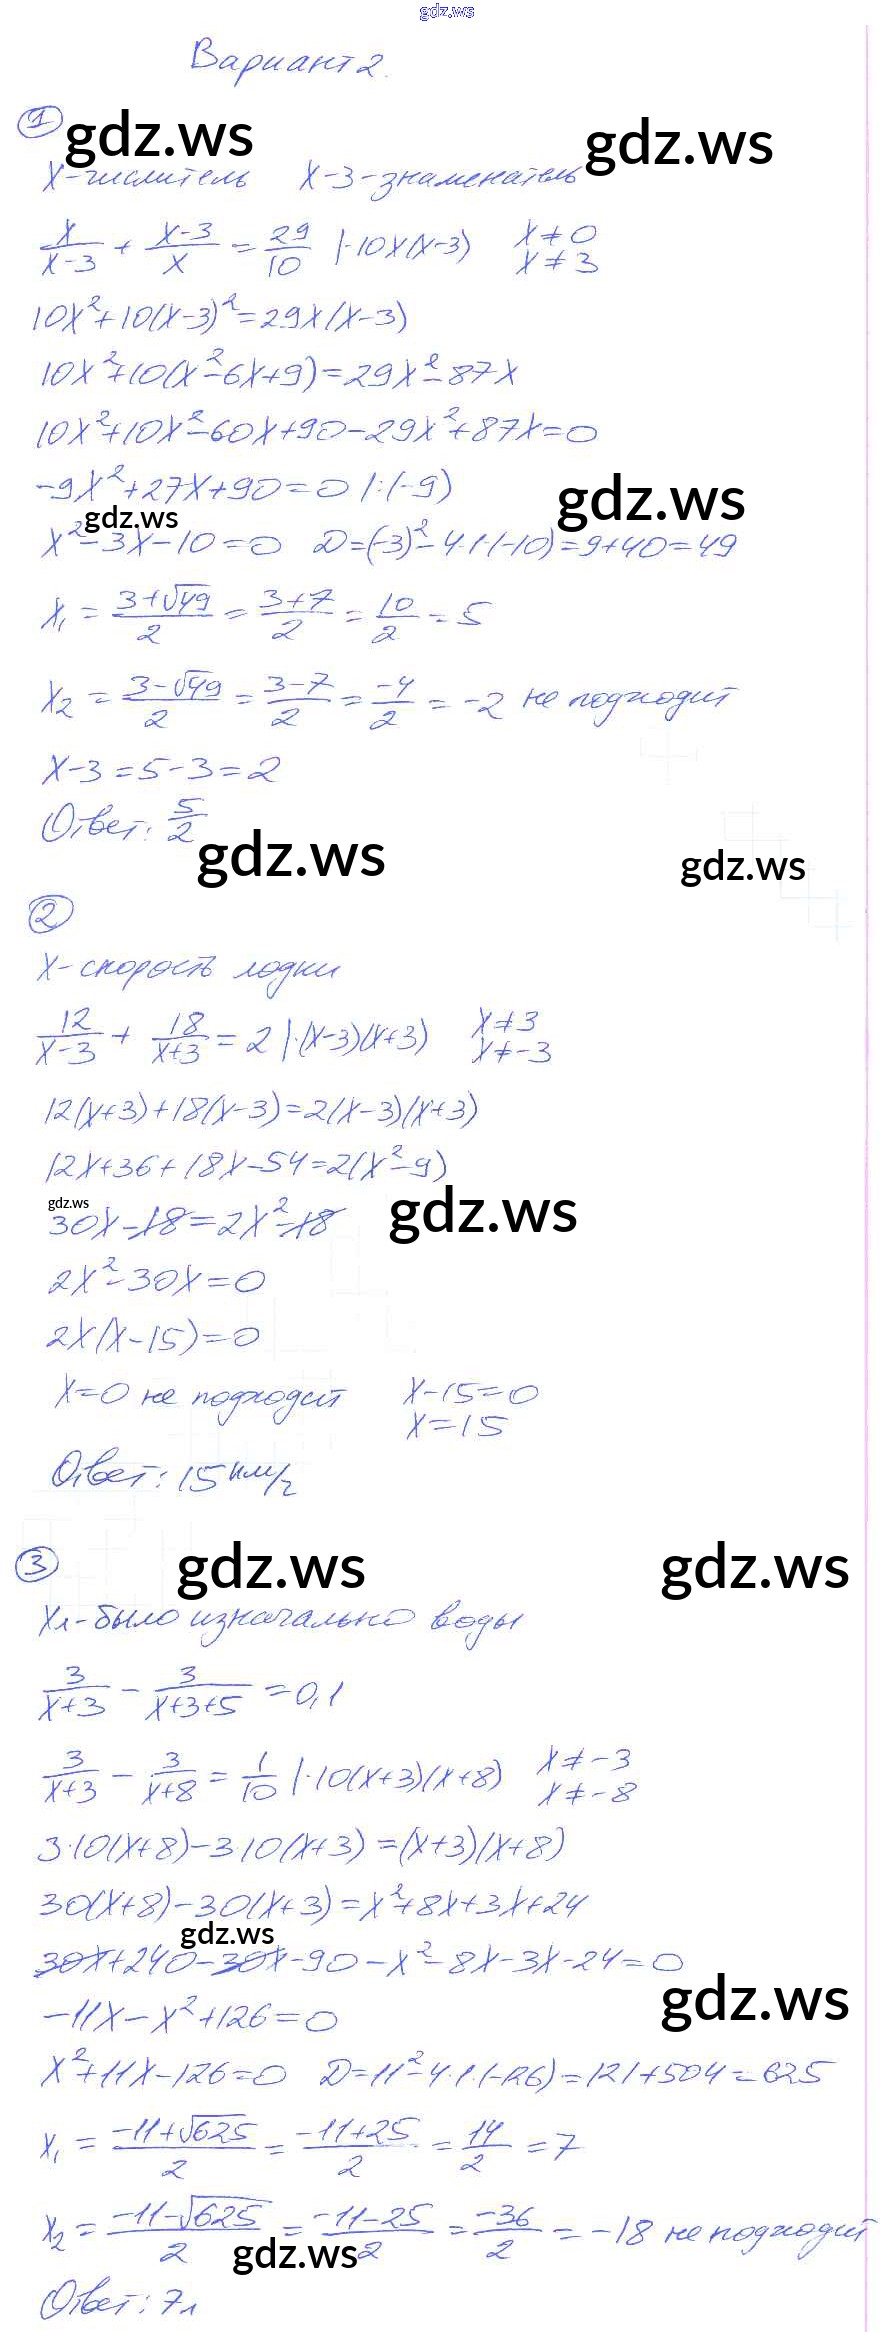 gdz.ws
Вариант 2.
1
gdz.ws gdz.ws
x-числитель x-3-знаменатель
x/(x-3) + (x-3)/x = 29/10 |·10x(x-3) x≠0
x≠3
10x²+10(x-3)²=29x(x-3)
10x²+10(x²-6x+9)=29x²-87x
10x²+10x²-60x+90-29x²+87x=0
-9x²+27x+90=0 |:(-9)
gdz.ws
gdz.ws
x²-3x-10=0 D=(-3)²-4·1·(-10)=9+40=49
x₁ = (3+√49)/2 = (3+7)/2 = 10/2 = 5
x₂ = (3-√49)/2 = (3-7)/2 = -4/2 = -2 не подходит
x-3=5-3=2
Ответ: 5/2
gdz.ws gdz.ws
2
x-скорость лодки
12/(x-3) + 18/(x+3) = 2 |·(x-3)(x+3) x≠3
x≠-3
12(x+3)+18(x-3)=2(x-3)(x+3)
12x+36+18x-54=2(x²-9)
gdz.ws gdz.ws
30x-18=2x²-18
2x²-30x=0
2x(x-15)=0
x=0 не подходит x-15=0
x=15
Ответ: 15 км/ч
3
gdz.ws gdz.ws
xл-было изначально воды
3/(x+3) - 3/(x+3+5) = 0,1
3/(x+3) - 3/(x+8) = 1/10 |·10(x+3)(x+8) x≠-3
x≠-8
3·10(x+8)-3·10(x+3)=(x+3)(x+8)
30(x+8)-30(x+3)=x²+8x+3x+24
gdz.ws
30x+240-30x-90-x²-8x-3x-24=0
gdz.ws
-11x-x²+126=0
x²+11x-126=0 D=11²-4·1·(-126)=121+504=625
x₁ = (-11+√625)/2 = (-11+25)/2 = 14/2 = 7
x₂ = (-11-√625)/2 = (-11-25)/2 = -36/2 = -18 не подходит
gdz.ws
Ответ: 7л